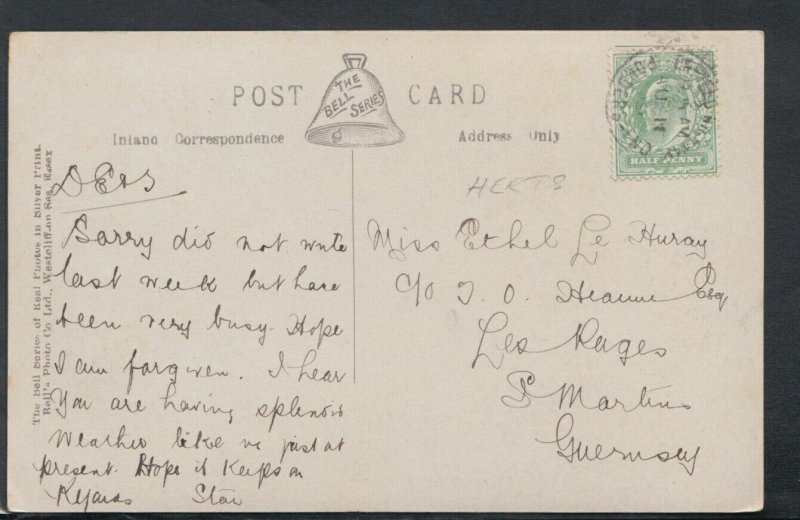 POST CARD
THE
BELL
SERIES
Inland Correspondence
Address Only
HALF PENNY
HERTS
The Bell Series of Real Photos in Silver Print.
Bell's Photo Co Ltd., Westcliff-on Sea, Essex
Sorry did not write
last week but have
been very busy. Hope
I am forgiven. I hear
You are having splendid
Weather like we just at
present. Hope it Keeps on
Regards
Miss Ethel Le Huray
c/o J. O. Esq
Les Rages
St Martins
Guernsey